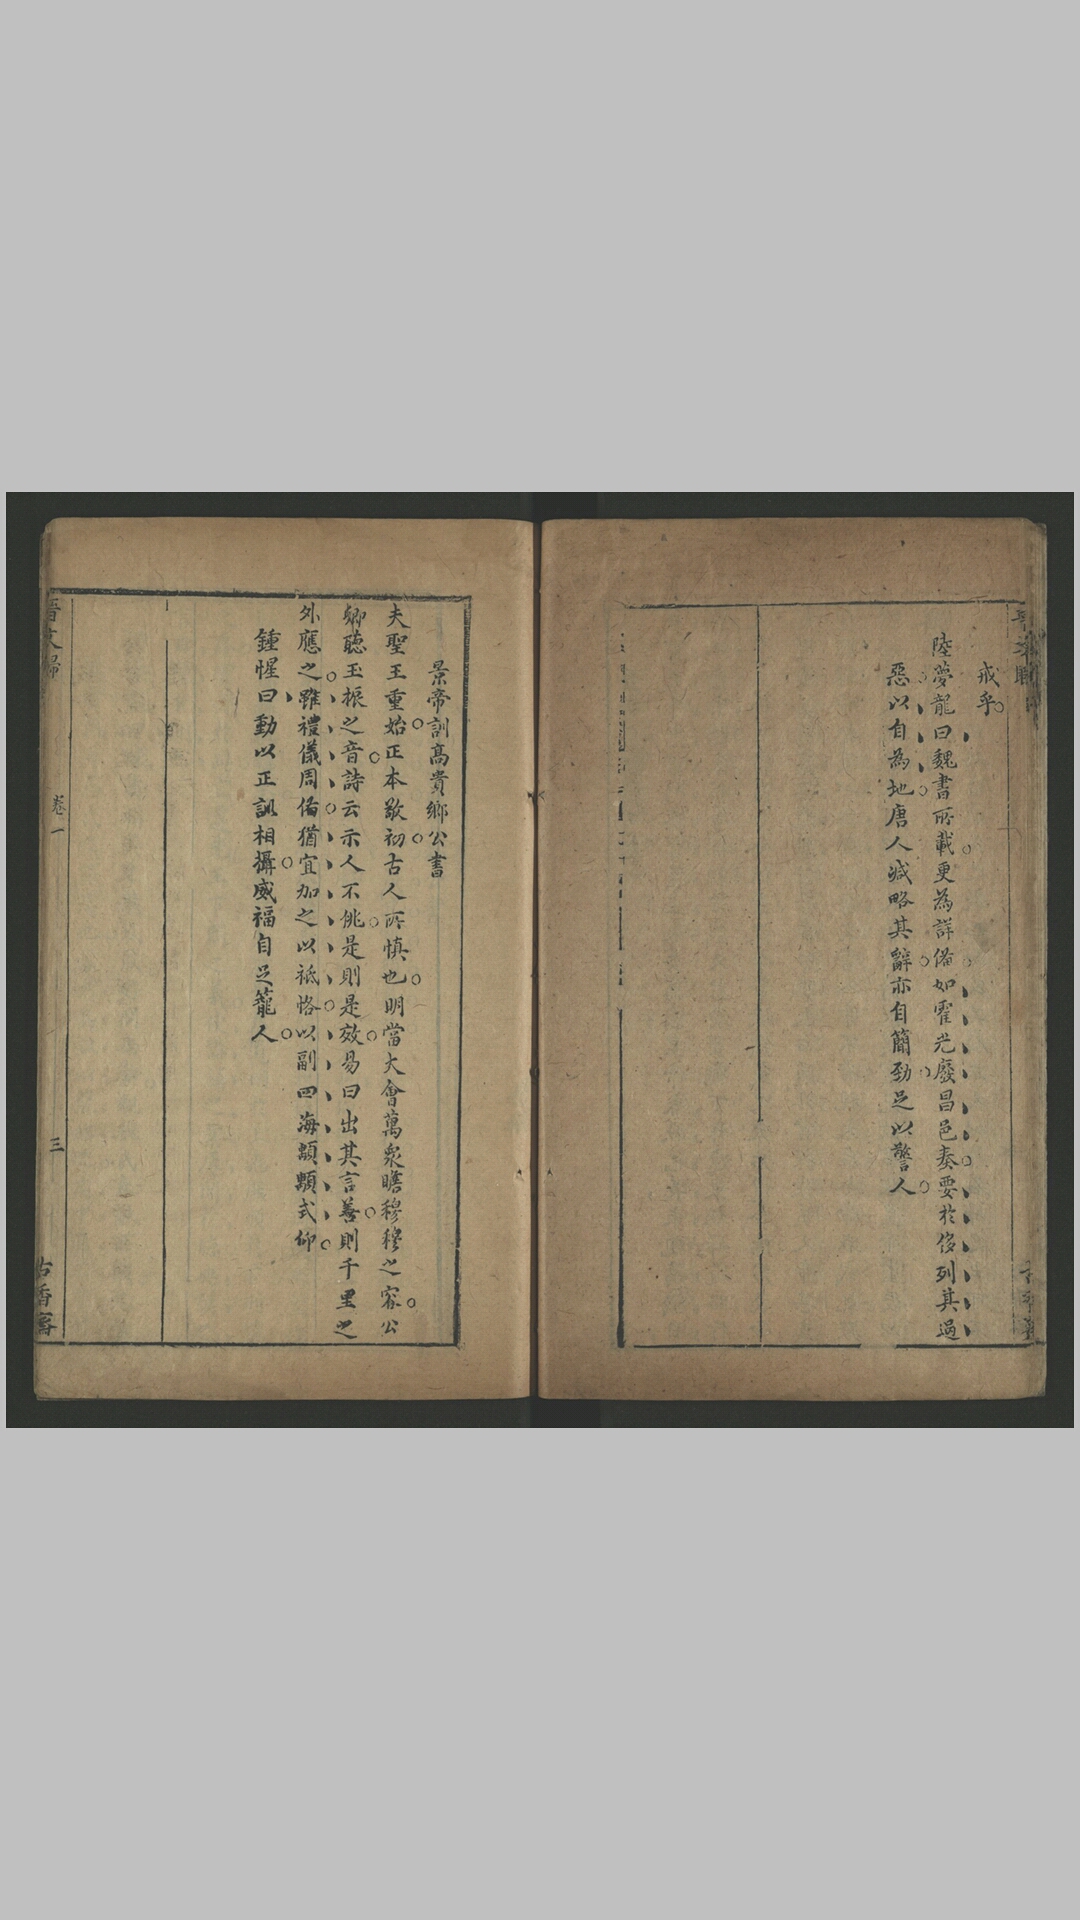 戒乎
陸夢龍曰魏書所載更為詳備如霍光廢昌邑奏要於侈列其過
惡以自為地唐人減略其辭亦自簡勁足以警人
景帝訓高貴鄉公書
夫聖王重始正本敬初古人所慎也明當大會萬眾瞻穆穆之容公
卿聴玉振之音詩云示人不佻是則是效易曰出其言善則千里之
外應之雖禮儀周備猶宜加之以祗恪以副四海顒顒式仰
鍾惺曰動以正訓相攝威福自足籠人
晋文歸
卷一
三
古香齋